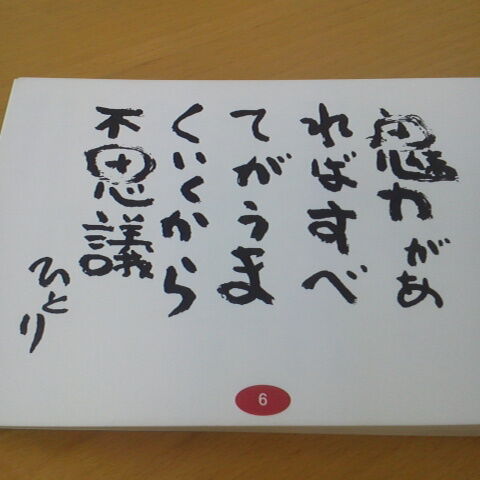 魅力があ
ればすべ
てがうま
くいくから
不思議
ひとり
6